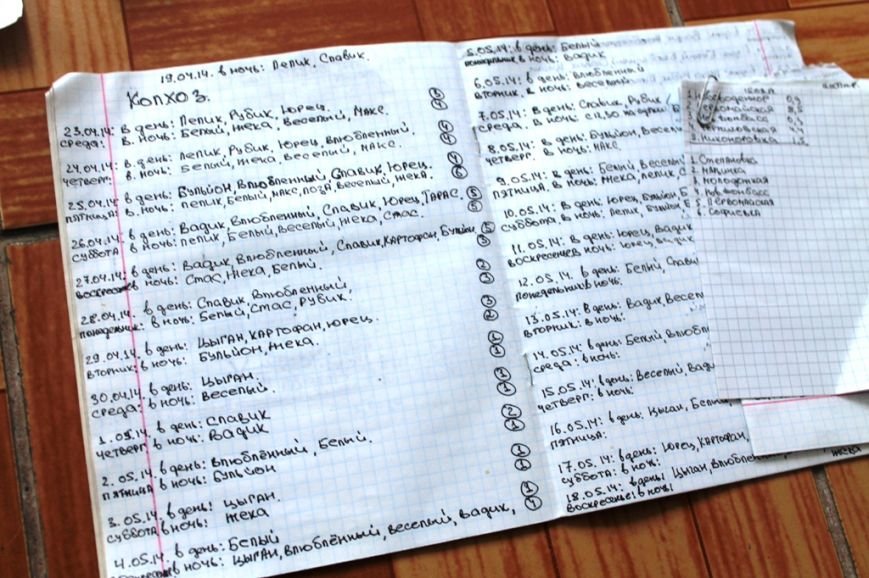 19.04.14. в ночь: Лелик, Славик.
Колхоз.
23.04.14: в день: Лелик, Рубик, Юрец. 3
среда: в ночь: Белый, Жека, Веселый, Макс. 4
24.04.14: в день: Лелик, Рубик, Юрец, Влюбленный. 4
четверг: в ночь: Белый, Жека, Веселый, Макс. 4
25.04.14: в день: Бульон, Влюбленный, Славик, Юрец. 4
пятница: в ночь: Лелик, Белый, Макс, Лоза, Веселый, Жека. 6
26.04.14: в день: Вадик, Влюбленный, Славик, Юрец, Тарас. 5
суббота в ночь: Лелик, Белый, Веселый, Жека, Стас. 5
27.04.14: в день: Вадик, Влюбленный, Славик, Картофан, Бульон 5
воскресенье в ночь: Стас, Жека, Белый. 3
28.04.14: в день: Славик, Влюбленный. 2
понедельник: в ночь: Белый, Стас, Рубик. 3
29.04.14: в день: Цыган, Картофан, Юрец. 3
вторник: в ночь: Бульон, Жека. 2
30.04.14: в день: Цыган. 1
среда: в ночь: Веселый. 1
1.05.14: в день: Славик 1
четверг в ночь: Вадик 1
2.05.14: в день: Влюблённый, Белый. 2
пятница в ночь: Бульон 1
3.05.14. в день: Цыган. 1
суббота в ночь: Жека 1
4.05.14. в день: Белый 1
в ночь: Цыган, Влюблённый, Веселый, Вадик,
5.05.14: в день: Белый
понедельник в ночь: Вадик
6.05.14: в день: Влюбленный
вторник. в ночь: Веселый
7.05.14: в день: Славик, Рубик
среда. в ночь: с 12.30
8.05.14: в день: Бульон,
четверг. в ночь: Макс
9.05.14: в день: Белый,
пятница. в ночь: Жека, Лелик,
10.05.14: в день: Юрец, Бульон
суббота. в ночь: Лелик, Бульон
11.05.14. в день: Юрец, Вадик
воскресенье в ночь: Юрец, Вадик
12.05.14. в день: Белый,
понедельник в ночь:
13.05.14: в день: Вадик,
вторник: в ночь:
14.05.14: в день: Белый,
среда: в ночь:
15.05.14: в день: Веселый,
четверг: в ночь:
16.05.14: в день: Цыган,
пятница:
17.05.14: в день: Юрец, Картофан,
суббота: в ночь:
18.05.14: в день: Цыган,
воскресенье: в ночь:
Первомайская
Никоноровка 1,3
1. Степановка
2. Малинка
3. Молодежная
4. Новдонбасс
5. Первомайская
6. Софиевка